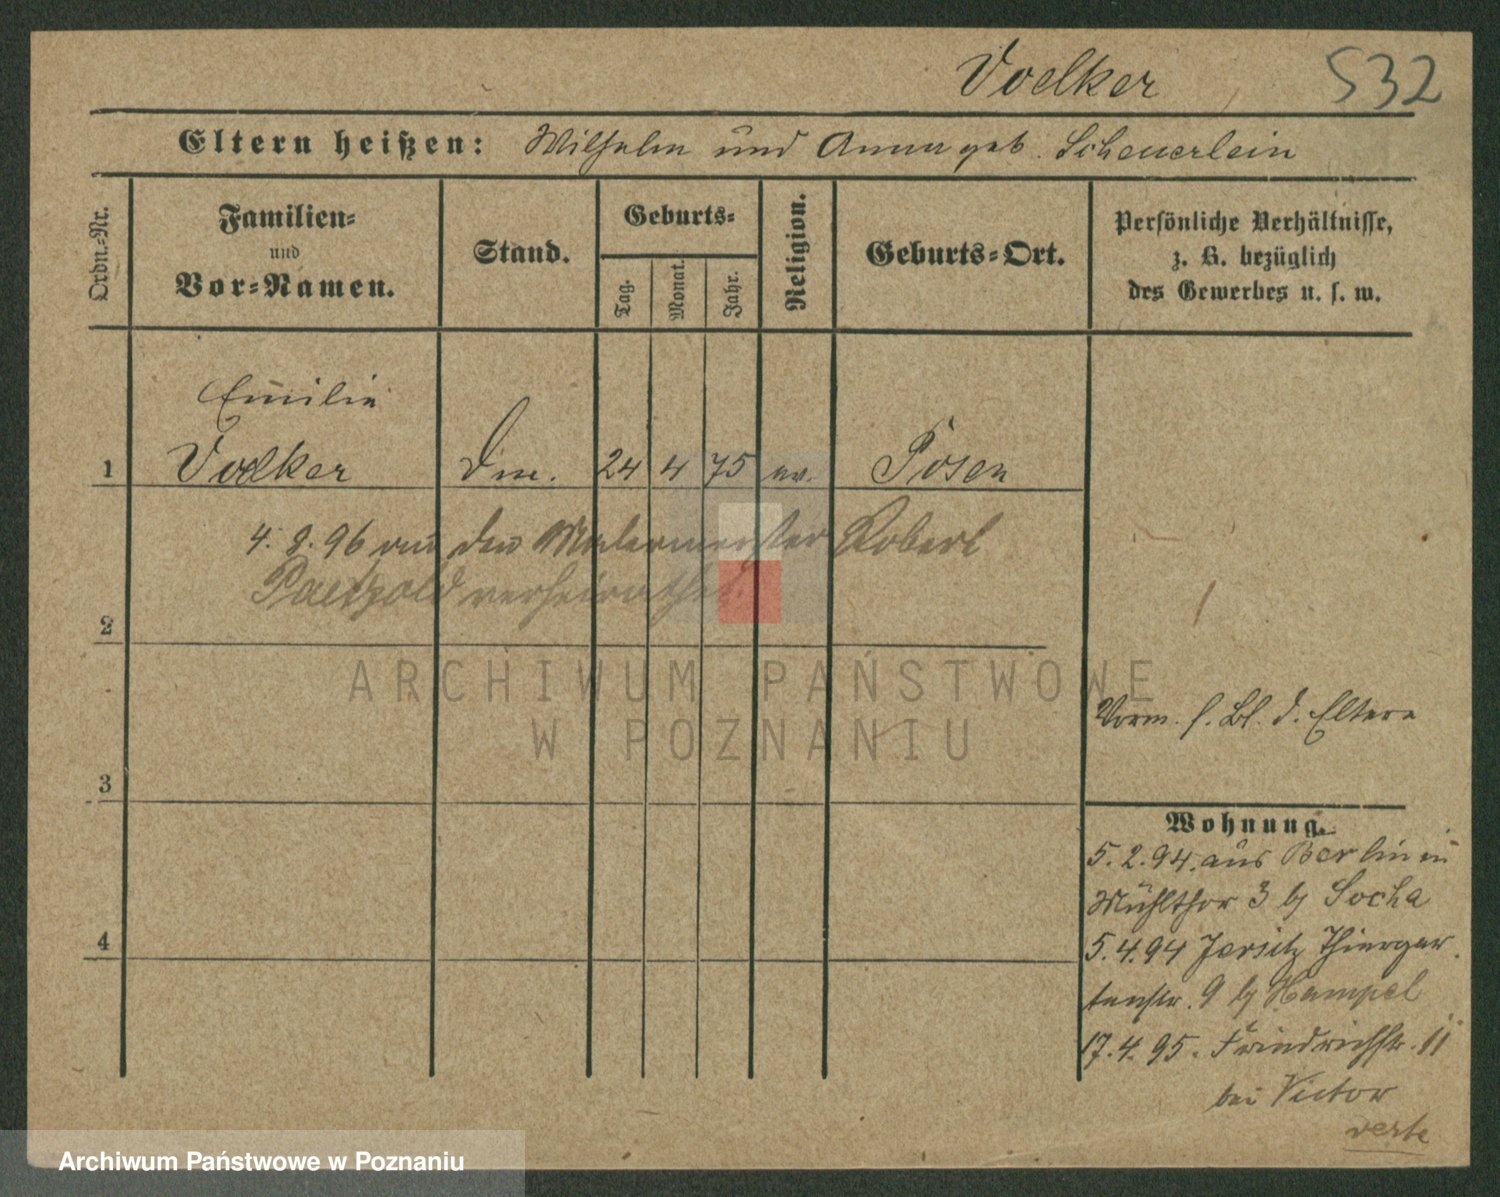 Voelker 532
Eltern heißen: Wilhelm und Anna geb. Scheuerlein
Ordn.-Nr.
Familien-
und
Vor-Namen.
Stand.
Geburts-
Tag.
Monat.
Jahr.
Religion.
Geburts-Ort.
Persönliche Verhältnisse,
z. B. bezüglich
des Gewerbes u. s. w.
Emilie
1 Voelker 24 4 75 ev. Posen
4. 8. 96 den Malermeister Robert
Paetzold verheirathet.
2
ARCHIWUM PAŃSTWOWE
W POZNANIU
3
4
Vorm. s. Bl. d. Eltern
Wohnung.
5. 2. 94. aus Berlin in
Mühlthor 3 b/ Socha
5. 4. 94 Jersitz Thiergar
tenstr. 9 b/ Hampel
17. 4. 95. Friedrichstr. 11
bei Victor
verte
Archiwum Państwowe w Poznaniu